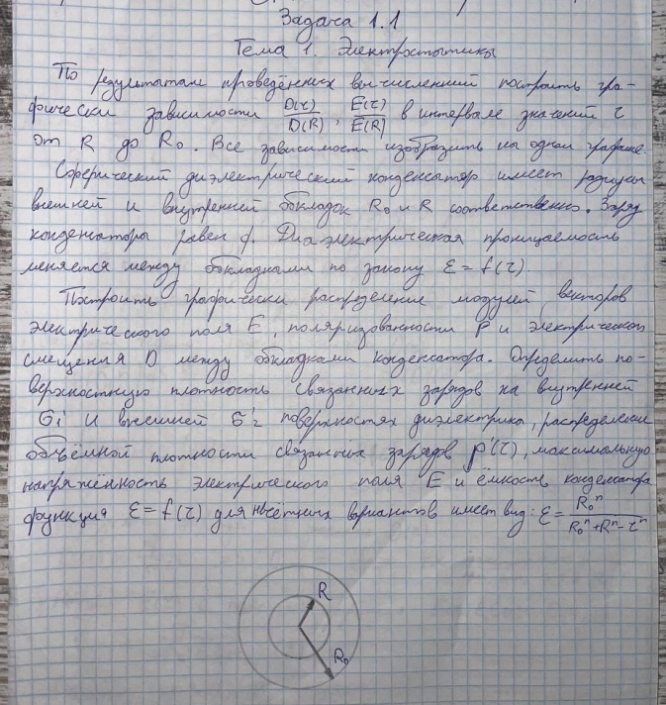 Задача 1.1
Тема 1. Электростатики
По результатам проведённых вычислений построить гра-
фически зависимости D(r)/D(R), E(r)/E(R) в интервале значений r
от R до R₀. Все зависимости изобразить на одном графике.
Сферический диэлектрический конденсатор имеет радиусы
внешней и внутренней обкладок R₀ и R соответственно. Заряд
конденсатора равен q. Диаэлектрическая проницаемость
меняется между обкладками по закону ε = f(r)
Построить графически распределение модулей векторов
электрического поля E, поляризованности P и электрического
смещения D между обкладками конденсатора. Определить по-
верхностную плотность связанных зарядов на внутренней
σ₁' и внешней σ'₂ поверхностях диэлектрика, распределение
объёмной плотности связанных зарядов ρ'(r), максимальную
напряжённость электрического поля E и ёмкость конденсатора
функция ε = f(r) для нечётных вариантов имеет вид: ε = R₀ⁿ/(R₀ⁿ+Rⁿ-rⁿ)
R
R₀